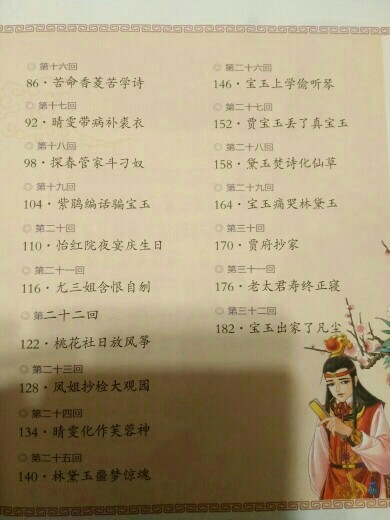 ◎ 第十六回
86·苦命香菱苦学诗
◎ 第十七回
92·晴雯带病补裘衣
◎ 第十八回
98·探春管家斗刁奴
◎ 第十九回
104·紫鹃编话骗宝玉
◎ 第二十回
110·怡红院夜宴庆生日
◎ 第二十一回
116·尤三姐含恨自刎
◎ 第二十二回
122·桃花社日放风筝
◎ 第二十三回
128·凤姐抄检大观园
◎ 第二十四回
134·晴雯化作芙蓉神
◎ 第二十五回
140·林黛玉噩梦惊魂
◎ 第二十六回
146·宝玉上学偷听琴
◎ 第二十七回
152·贾宝玉丢了真宝玉
◎ 第二十八回
158·黛玉焚诗化仙草
◎ 第二十九回
164·宝玉痛哭林黛玉
◎ 第三十回
170·贾府抄家
◎ 第三十一回
176·老太君寿终正寝
◎ 第三十二回
182·宝玉出家了凡尘